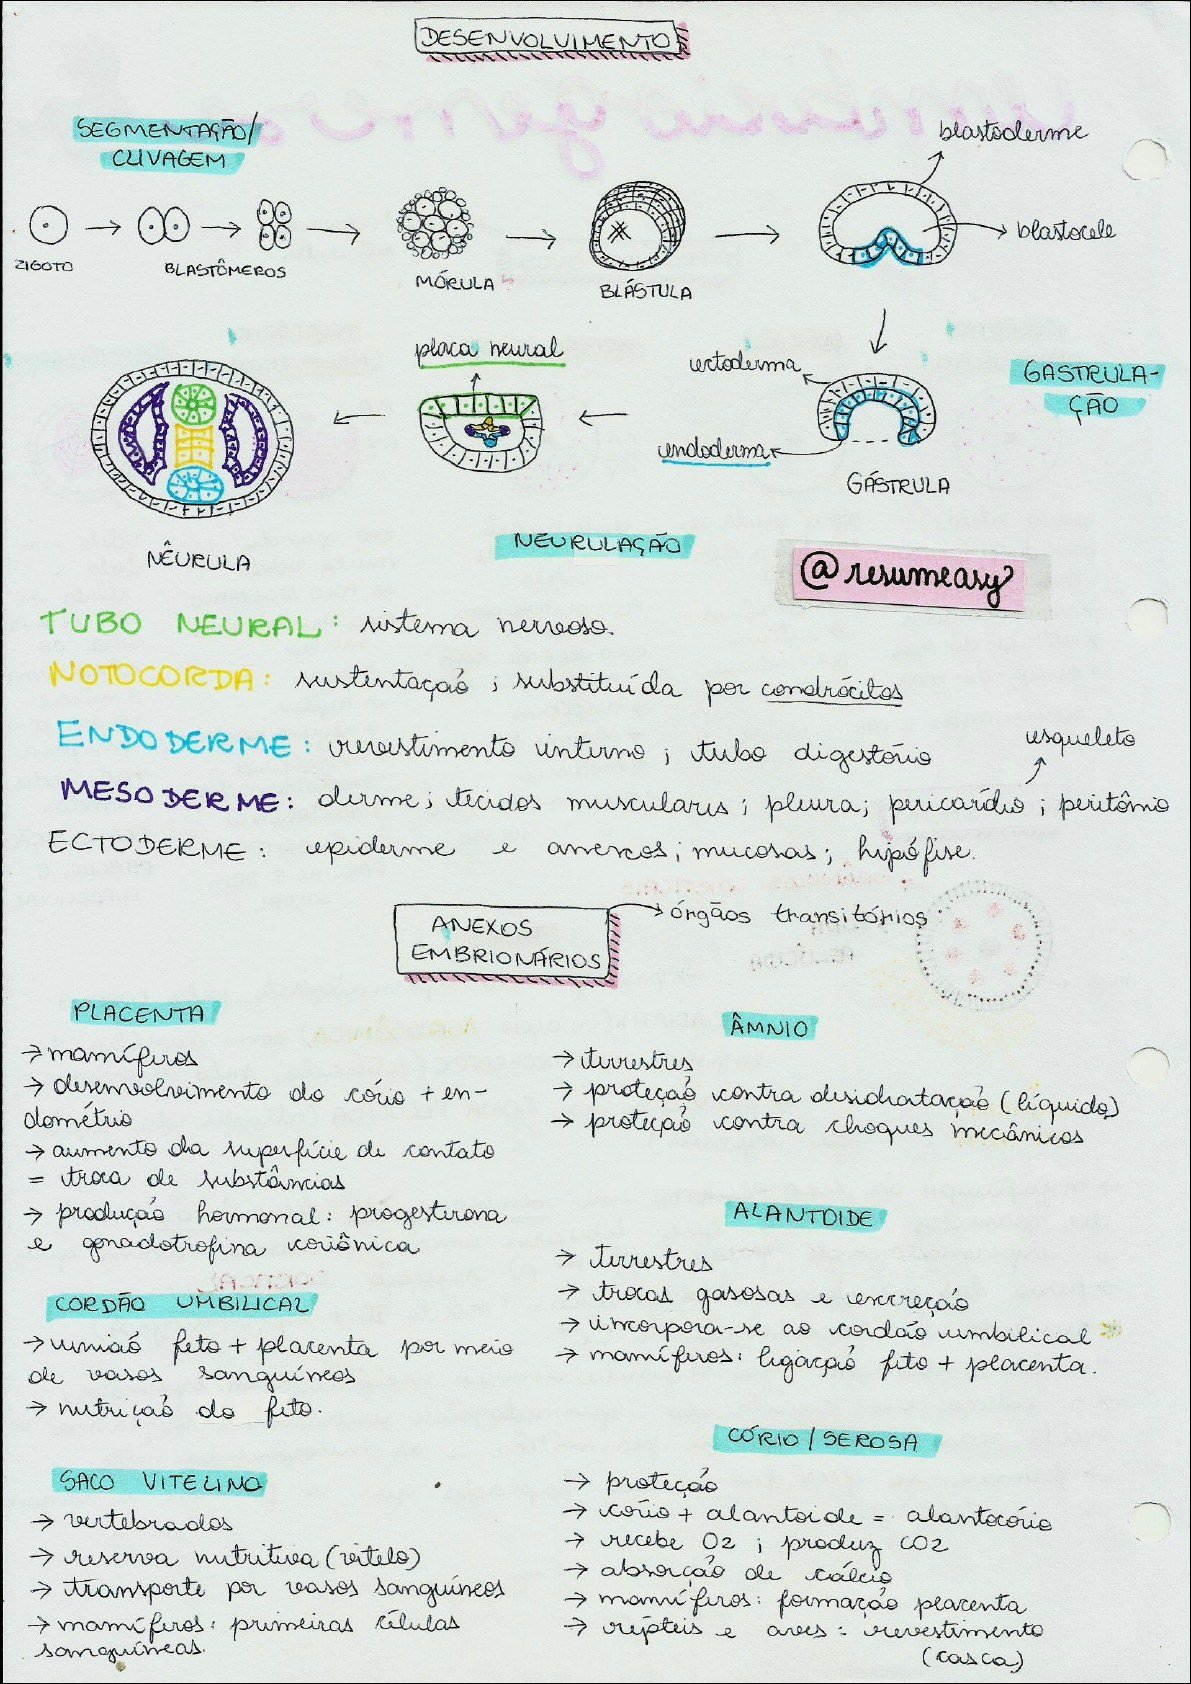 DESENVOLVIMENTO
SEGMENTAÇÃO/
CLIVAGEM
blastoderme
blastocele
ZIGOTO
BLASTÔMEROS
MÓRULA
BLÁSTULA
placa neural
ectoderma
endoderma
GASTRULA-
ÇÃO
GÁSTRULA
NÊURULA
NEURULAÇÃO
@resumeasy
TUBO NEURAL: sistema nervoso.
NOTOCORDA: sustentação; substituída por condrócitos
ENDODERME: revestimento interno; tubo digestório
esqueleto
MESODERME: derme; tecidos musculares; pleura; pericárdio; peritônio
ECTODERME: epiderme e anexos; mucosas; hipófise.
ANEXOS
EMBRIONÁRIOS
→ órgãos transitórios
PLACENTA
→ mamíferos
→ desenvolvimento do cório + en-
dométrio
→ aumento da superfície de contato
= troca de substâncias
→ produção hormonal: progesterona
e gonadotrofina coriônica
CORDÃO UMBILICAL
→ união feto + placenta por meio
de vasos sanguíneos
→ nutrição do feto.
SACO VITELINO
→ vertebrados
→ reserva nutritiva (vitelo)
→ transporte por vasos sanguíneos
→ mamíferos: primeiras células
sanguíneas.
ÂMNIO
→ terrestres
→ proteção contra desidratação (líquido)
→ proteção contra choques mecânicos
ALANTOIDE
→ terrestres
→ trocas gasosas e excreção
→ incorpora-se ao cordão umbilical
→ mamíferos: ligação feto + placenta.
CÓRIO/SEROSA
→ proteção
→ cório + alantoide = alantocório
→ recebe O2; produz CO2
→ absorção de cálcio
→ mamíferos: formação placenta
→ répteis e aves: revestimento
(casca)